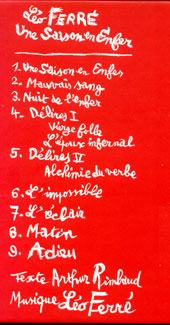 Léo FERRÉ
Une Saison en Enfer
1. Une Saison en Enfer
2. Mauvais sang
3. Nuit de l'enfer
4. Délires I
Vierge folle
L'époux infernal
5. Délires II
Alchimie du verbe
6. L'impossible
7. L'éclair
8. Matin
9. Adieu
Texte Arthur Rimbaud
Musique Léo Ferré